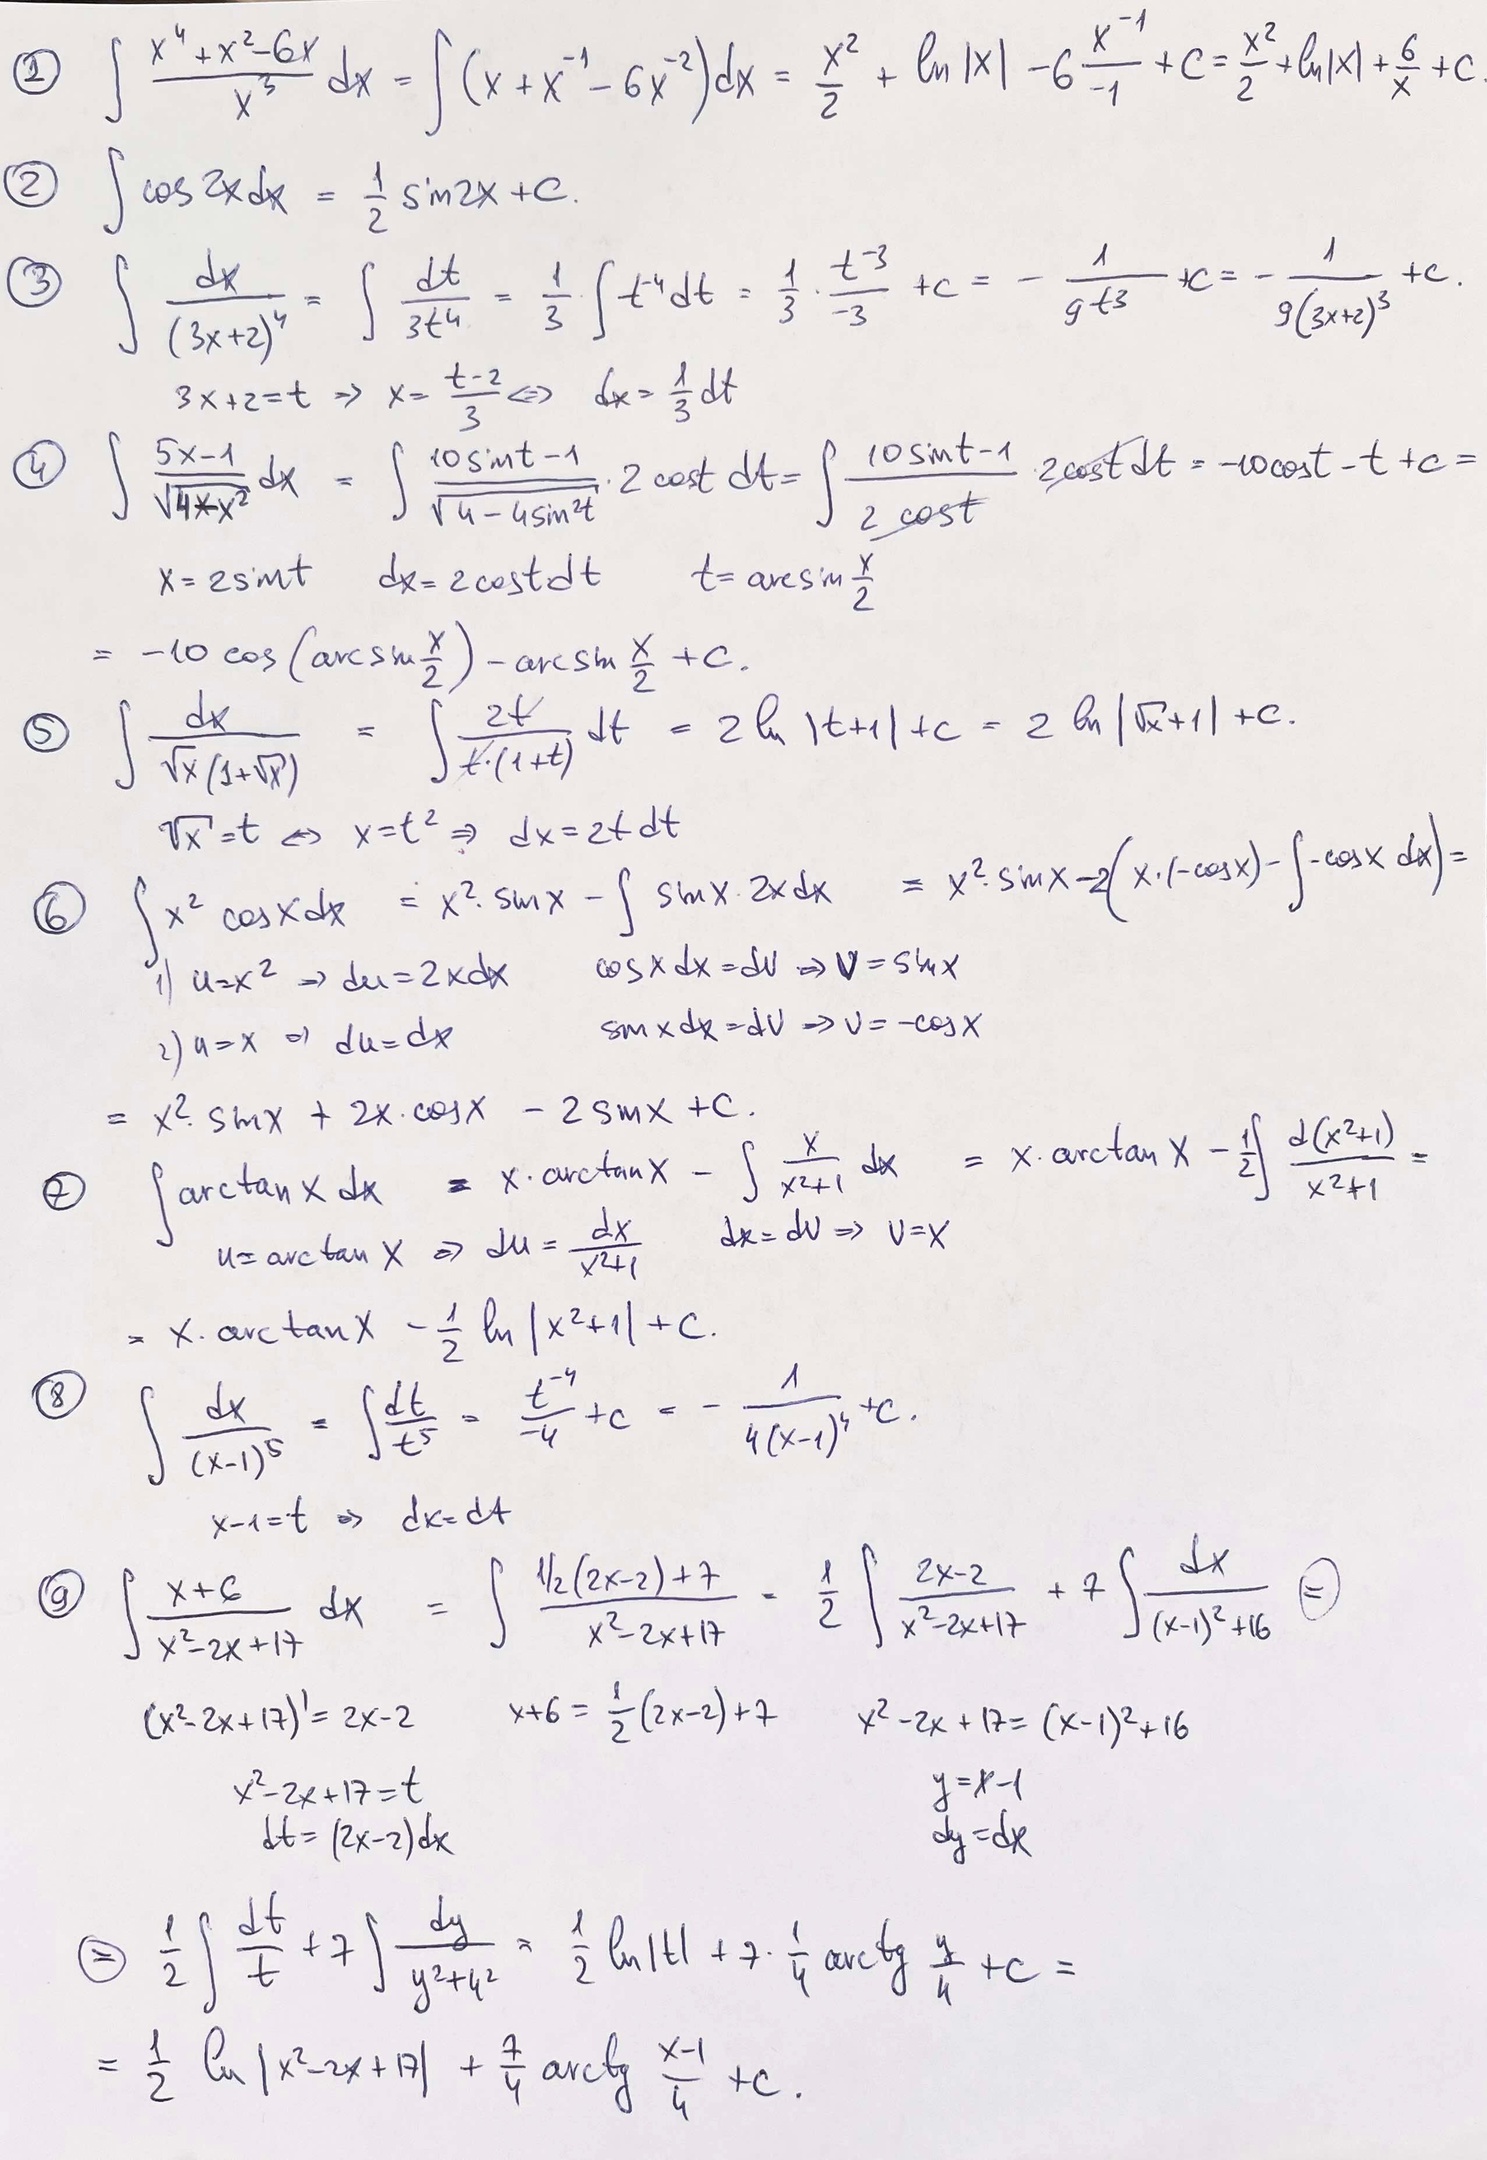 ① ∫ (x⁴+x²-6x)/x³ dx = ∫ (x+x⁻¹-6x⁻²)dx = x²/2 + ln|x| -6 x⁻¹/-1 +C = x²/2 + ln|x| + 6/x +C.
② ∫ cos 2x dx = 1/2 sin2x +C.
③ ∫ dx/(3x+2)⁴ = ∫ dt/3t⁴ = 1/3 · ∫ t⁻⁴ dt = 1/3 · t⁻³/-3 +C = - 1/9t³ +C = - 1/9(3x+2)³ +C.
3x+2=t ⇒ x= (t-2)/3 ⇔ dx= 1/3 dt
④ ∫ (5x-1)/√(4-x²) dx = ∫ (10sint-1)/√(4-4sin²t) · 2cost dt = ∫ (10sint-1)/2cost · 2cost dt = -10cost-t+C =
x=2sint dx=2cost dt t=arcsin x/2
= -10 cos(arcsin x/2) - arcsin x/2 +C.
⑤ ∫ dx/√x(1+√x) = ∫ 2t/t·(1+t) dt = 2 ln|t+1|+C = 2 ln|√x+1|+C.
√x=t ⇔ x=t² ⇒ dx=2t dt
⑥ ∫ x² cosx dx = x²·sinx - ∫ sinx·2x dx = x²·sinx -2(x·(-cosx) - ∫-cosx dx) =
1) u=x² ⇒ du=2xdx cosx dx=dV ⇒ V=sinx
2) u=x ⇒ du=dx sinx dx=dV ⇒ V=-cosx
= x²·sinx + 2x·cosx - 2sinx +C.
⑦ ∫ arctanx dx = x·arctanx - ∫ x/(x²+1) dx = x·arctanx - 1/2 ∫ d(x²+1)/(x²+1) =
u=arctanx ⇒ du= dx/(x²+1) dx=dV ⇒ V=x
= x·arctanx - 1/2 ln|x²+1|+C.
⑧ ∫ dx/(x-1)⁵ = ∫ dt/t⁵ = t⁻⁴/-4 +C = - 1/4(x-1)⁴ +C.
x-1=t ⇒ dx=dt
⑨ ∫ (x+6)/(x²-2x+17) dx = ∫ (1/2(2x-2)+7)/(x²-2x+17) = 1/2 ∫ (2x-2)/(x²-2x+17) + 7 ∫ dx/((x-1)²+16) =
(x²-2x+17)'=2x-2 x+6= 1/2 (2x-2)+7 x²-2x+17=(x-1)²+16
x²-2x+17=t y=x-1
dt=(2x-2)dx dy=dx
= 1/2 ∫ dt/t + 7 ∫ dy/(y²+4²) = 1/2 ln|t| + 7· 1/4 arctg y/4 +C =
= 1/2 ln|x²-2x+17| + 7/4 arctg (x-1)/4 +C.